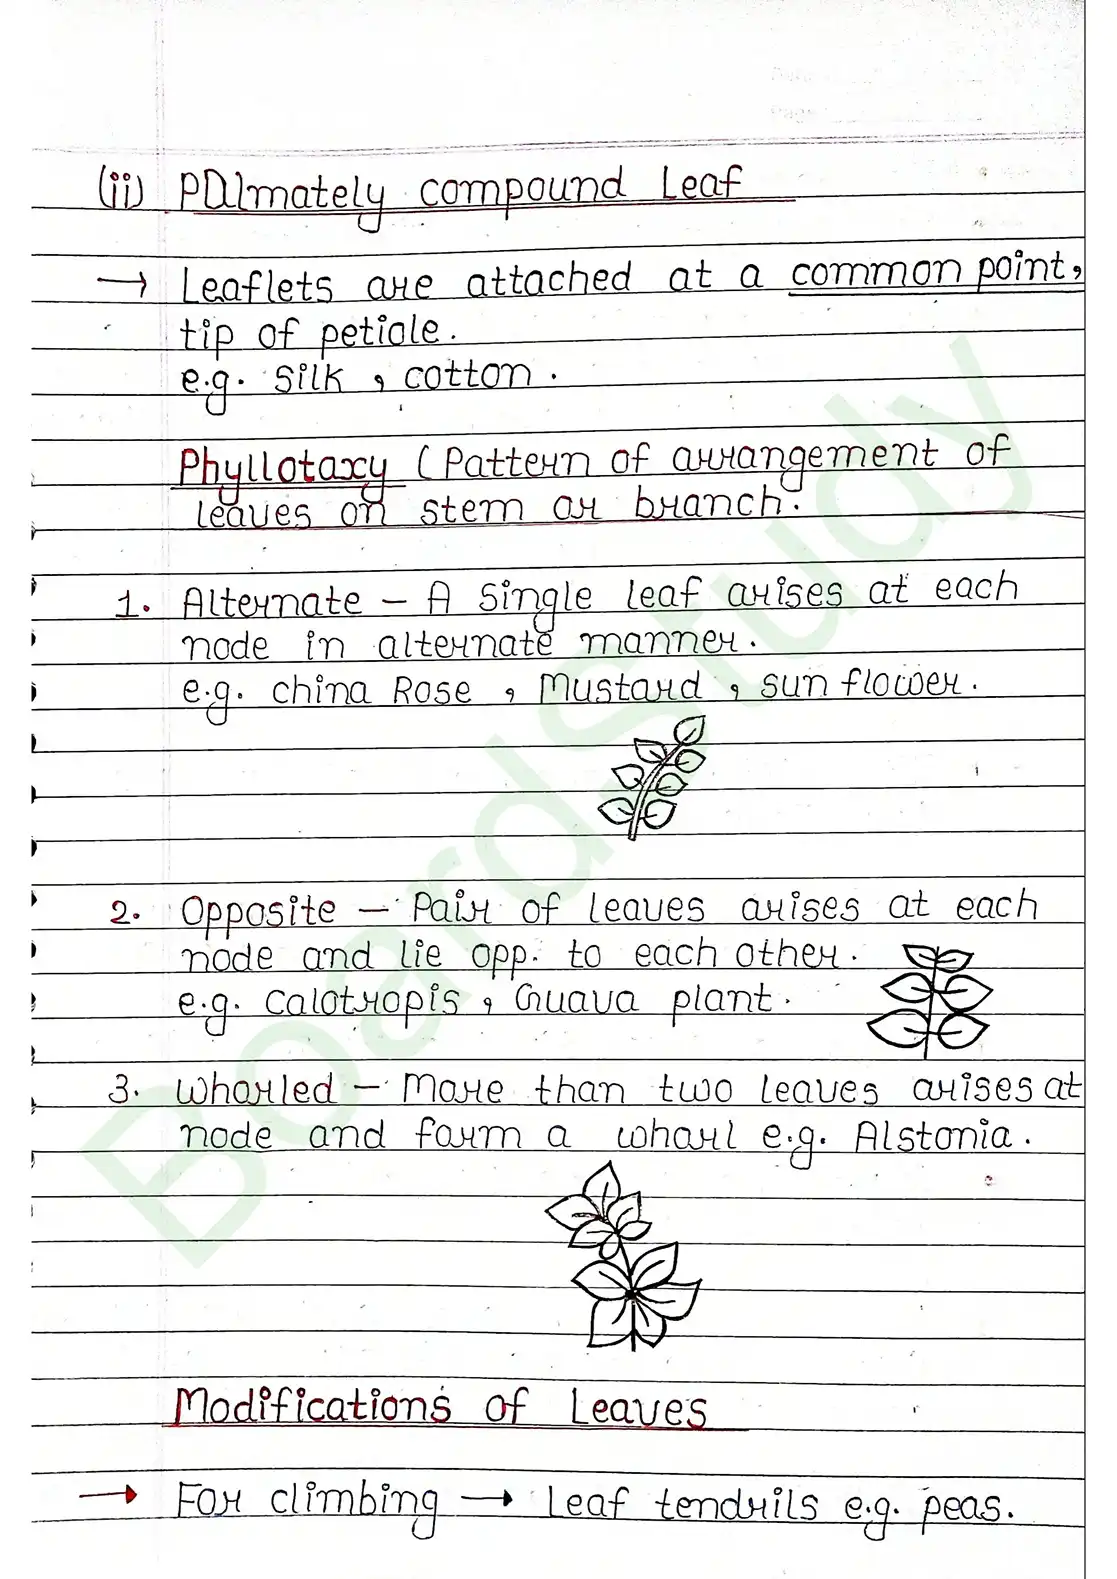 (ii) Palmately compound Leaf
→ Leaflets are attached at a common point,
tip of petiole.
e.g. Silk , cotton .
Phyllotaxy ( Pattern of arrangement of
leaves on stem or branch.
1. Alternate – A Single leaf arises at each
node in alternate manner.
e.g. china Rose , Mustard , sun flower.
2. Opposite – Pair of leaves arises at each
node and lie opp. to each other.
e.g. Calotropis , Guava plant.
3. Whorled – More than two leaves arises at
node and form a whorl e.g. Alstonia.
Modifications of Leaves
→ For climbing → Leaf tendrils e.g. peas.
BoardStudy